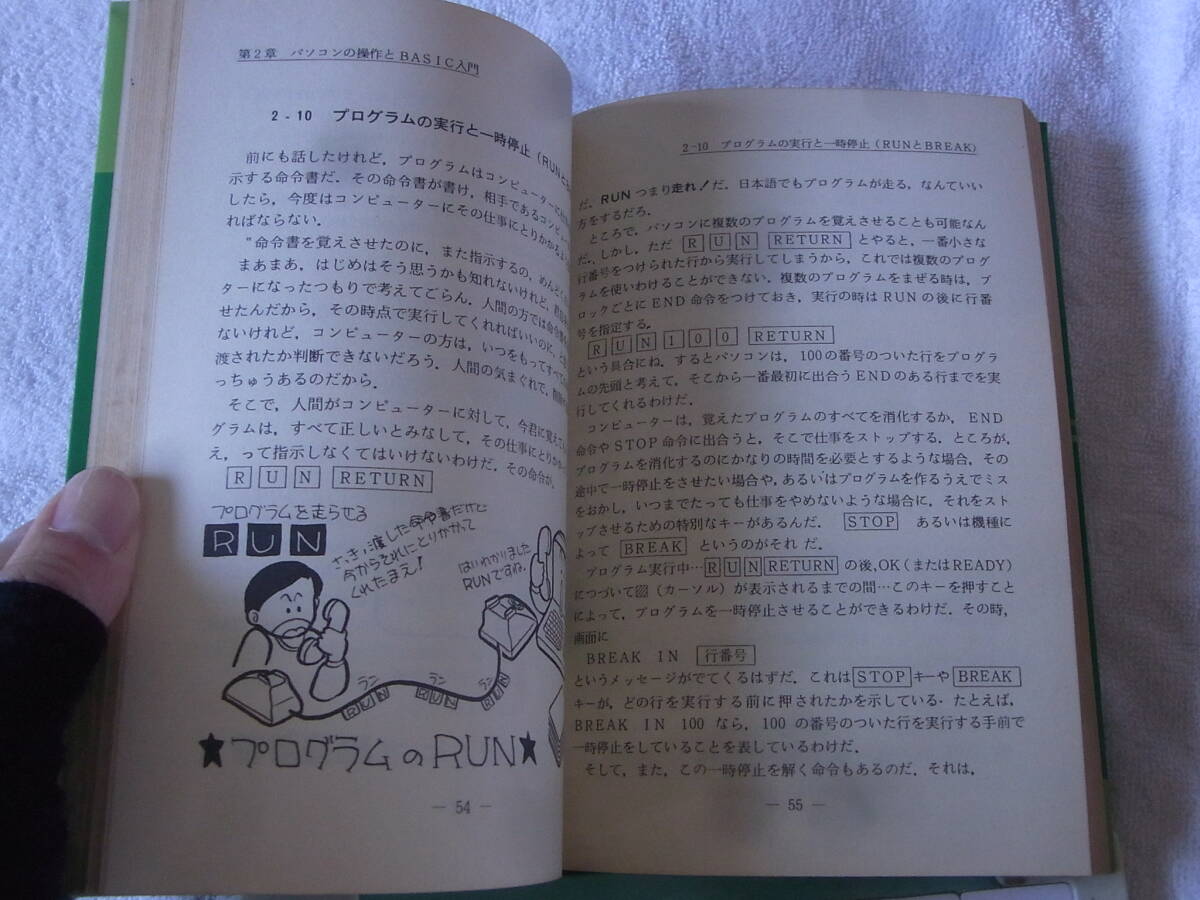 第2章 パソコンの操作とBASIC入門
2-10 プログラムの実行と一時停止(RUNと
前にも話したけれど,プログラムはコンピューターに
示する命令書だ.その命令書が書け,相手であるコンピュ
したら,今度はコンピューターにその仕事にとりかかる
ればならない.
"命令書を覚えさせたのに,また指示するの,めんどく
まあまあ,はじめはそう思うかも知れないけれど,
ターになったつもりで考えてごらん.人間の方では命令書
せたんだから,その時点で実行してくれればいいのに,と
ないけれど,コンピューターの方は,いつをもってすべて
渡されたか判断できないだろう.人間の気まぐれで,
っちゅうあるのだから.
そこで,人間がコンピューターに対して,今君に覚えて
グラムは,すべて正しいとみなして,その仕事にとりか
え,って指示しなくてはいけないわけだ.その命令が,
RUN RETURN
プログラムを走らせる
RUN
さっき渡した命令書だけど
今からそれにとりかかって
くれたまえ!
はいわかりました
RUNですね.
ラン ラン ラン
RUN RUN RUN
★プログラムのRUN★
— 54 —
2-10 プログラムの実行と一時停止(RUNとBREAK)
だ.RUNつまり走れ!だ.日本語でもプログラムが走る,なんていい
方をするだろ.
ところで,パソコンに複数のプログラムを覚えさせることも可能なん
だ.しかし,ただ RUN RETURN とやると,一番小さな
行番号をつけられた行から実行してしまうから,これでは複数のプログ
ラムを使いわけることができない.複数のプログラムをまぜる時は,ブ
ロックごとにEND命令をつけておき,実行の時はRUNの後に行番
号を指定する.
RUN100 RETURN
という具合にね.するとパソコンは,100の番号のついた行をプログラ
ムの先頭と考えて,そこから一番最初に出合うENDのある行までを実
行してくれるわけだ.
コンピューターは,覚えたプログラムのすべてを消化するか,END
命令やSTOP命令に出合うと,そこで仕事をストップする.ところが,
プログラムを消化するのにかなりの時間を必要とするような場合,その
途中で一時停止をさせたい場合や,あるいはプログラムを作るうえでミス
をおかし,いつまでたっても仕事をやめないような場合に,それをスト
ップさせるための特別なキーがあるんだ. STOP あるいは機種に
よって BREAK というのがそれ だ.
プログラム実行中…RUN RETURNの後,OK(またはREADY)
につづいて▨(カーソル)が表示されるまでの間…このキーを押すこと
によって,プログラムを一時停止させることができるわけだ.その時,
画面に
BREAK IN 行番号
というメッセージがでてくるはずだ.これはSTOPキーやBREAK
キーが,どの行を実行する前に押されたかを示している.たとえば,
BREAK IN 100 なら,100 の番号のついた行を実行する手前で
一時停止をしていることを表しているわけだ.
そして,また,この一時停止を解く命令もあるのだ.それは,
— 55 —